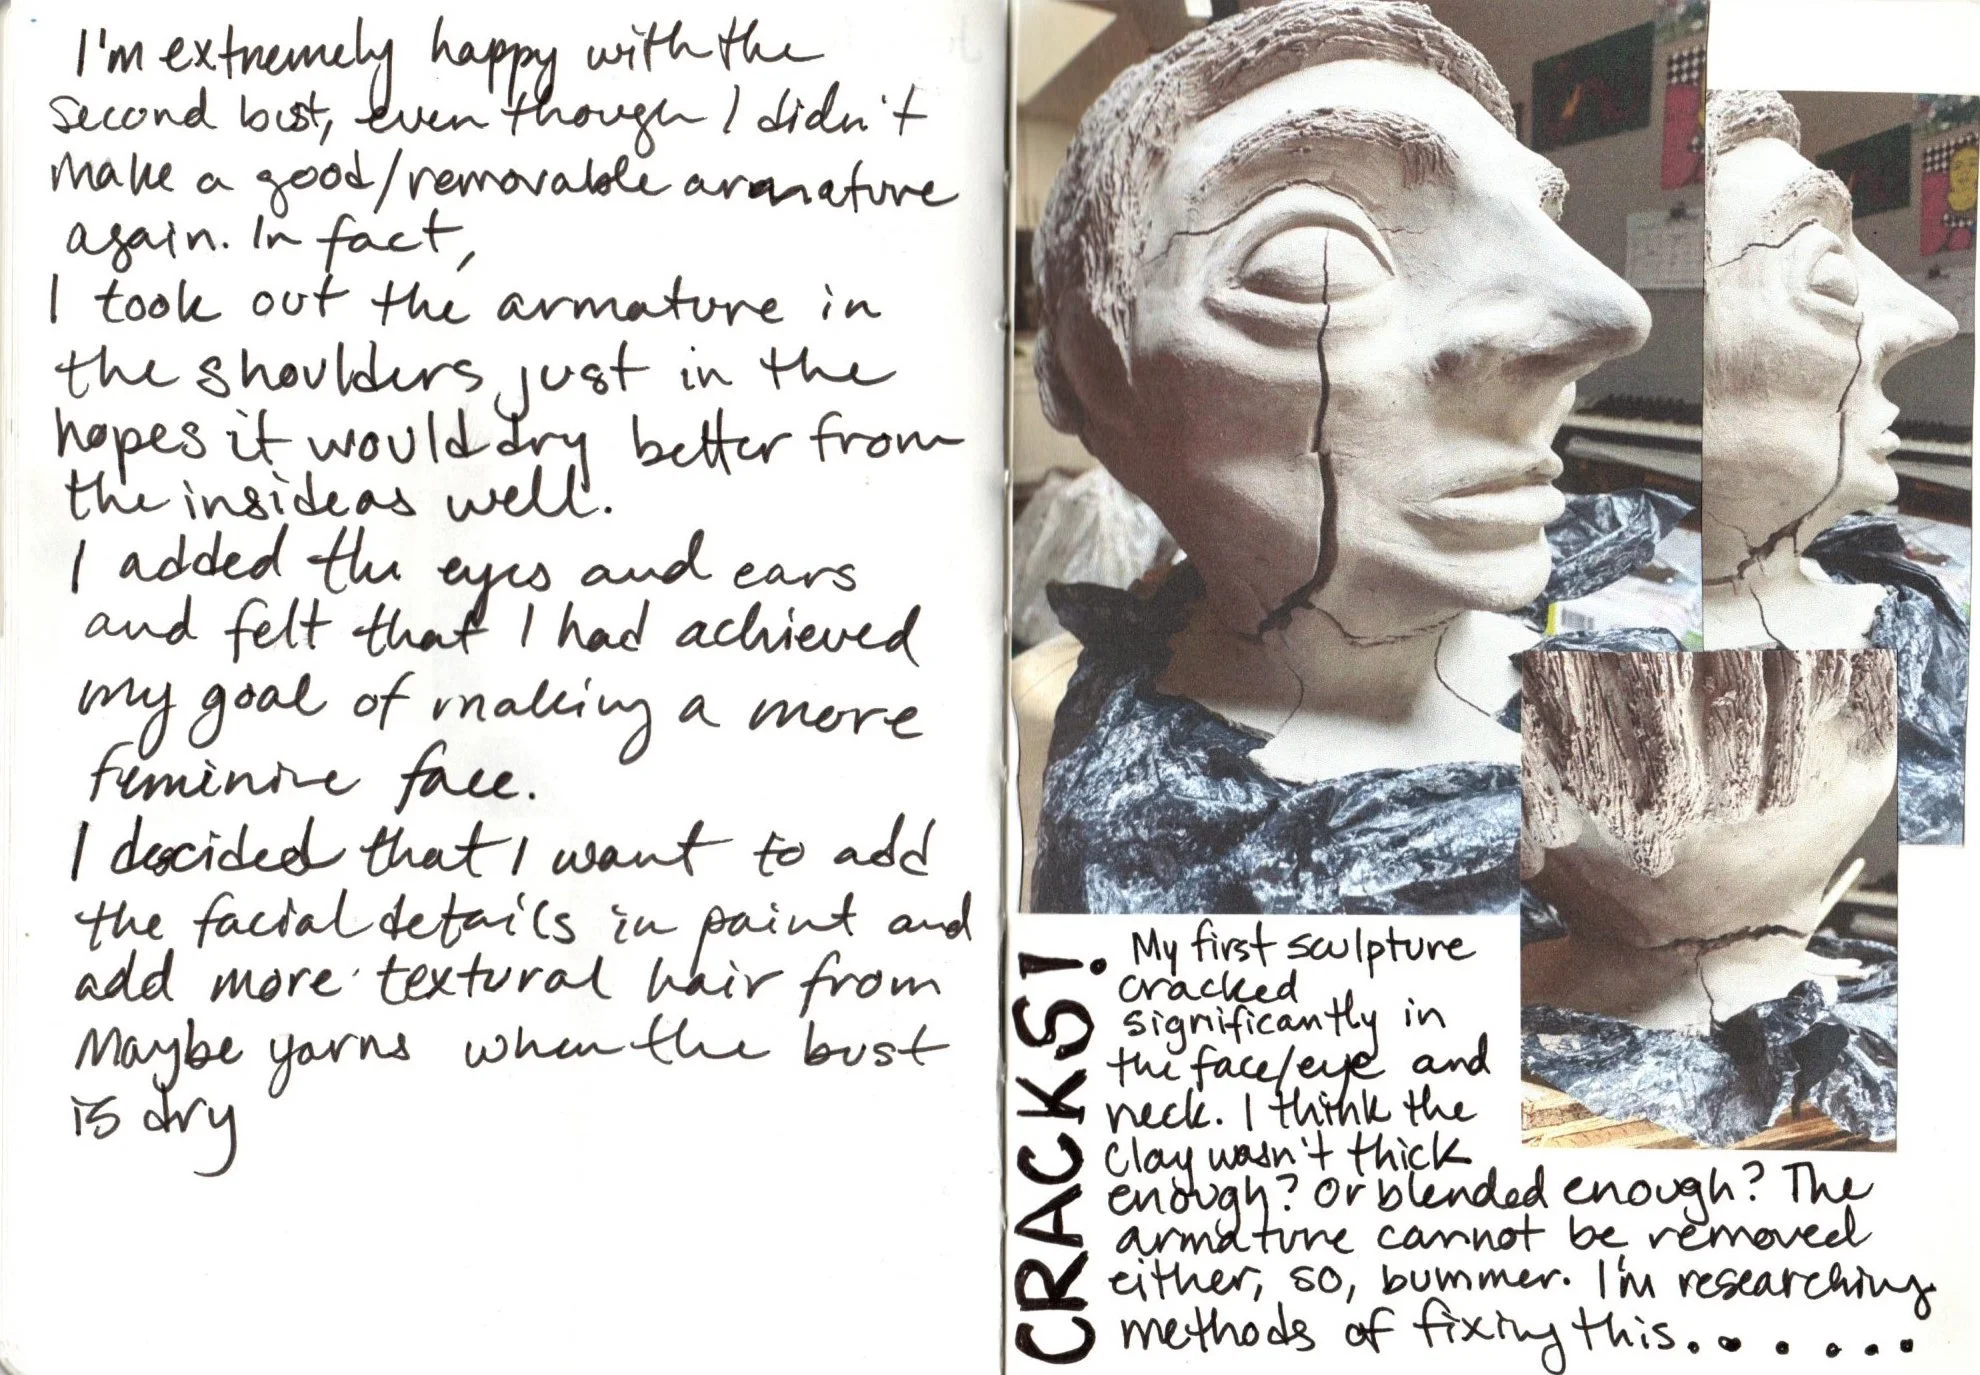 I'm extremely happy with the
second bust, even though I didn't
make a good/removable armature
again. In fact,
I took out the armature in
the shoulders just in the
hopes it would dry better from
the inside as well.
I added the eyes and ears
and felt that I had achieved
my goal of making a more
feminine face.
I decided that I want to add
the facial details in paint and
add more textural hair from
maybe yarns when the bust
is dry
CRACKS!
My first sculpture
cracked
significantly in
the face/eye and
neck. I think the
clay wasn't thick
enough? Or blended enough? The
armature cannot be removed
either, so, bummer. I'm researching
methods of fixing this.......